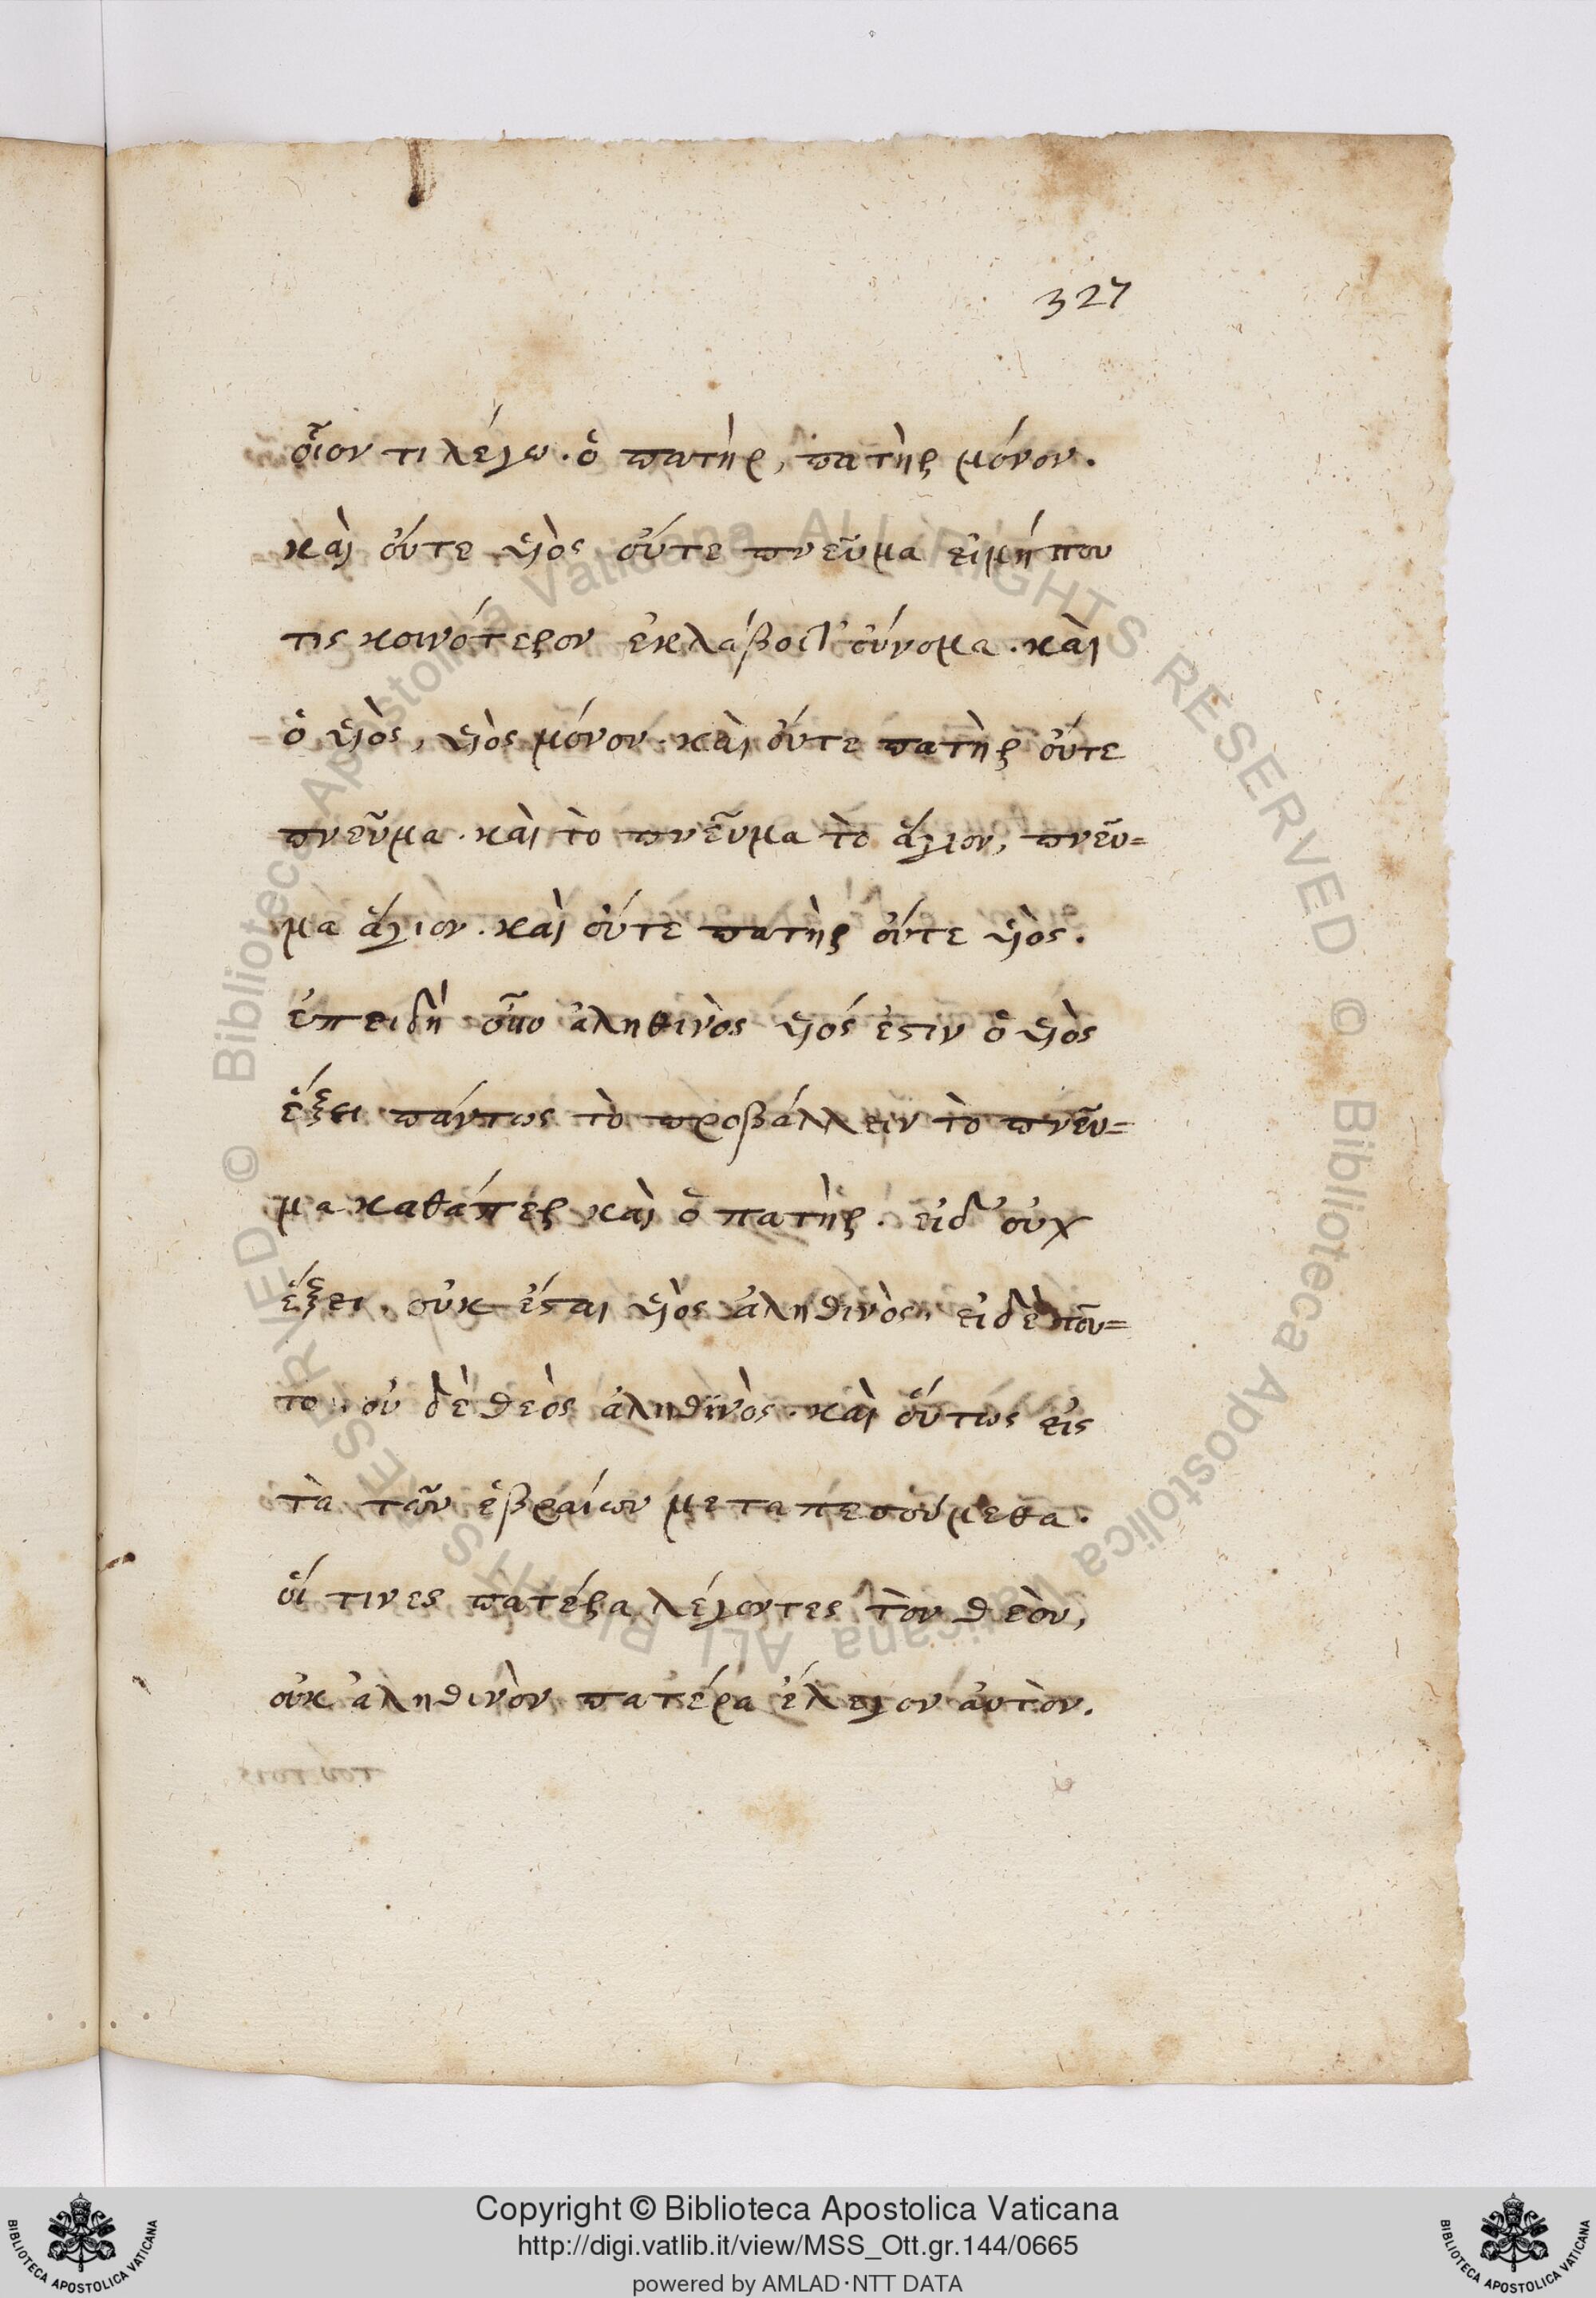 327
οἷόν τι λέγω. ὁ πατὴρ, πατὴρ μόνον.
καὶ οὔτε υἱὸς οὔτε πνεῦμα εἰμήπου
τις κοινότερον ἐκλάβοι τ' οὔνομα. καὶ
ὁ υἱὸς, υἱὸς μόνον. καὶ οὔτε πατὴρ οὔτε
πνεῦμα. καὶ τὸ πνεῦμα τὸ ἅγιον, πνεῦ=
μα ἅγιον. καὶ οὔτε πατὴρ οὔτε υἱὸς.
ἐπειδὴ ἀληθινὸς υἱός ἐστιν ὁ υἱὸς
ἕξει πάντως τὸ προβάλλειν τὸ πνεῦ=
μα καθάπερ καὶ ὁ πατὴρ. εἰδ' οὐχ
ἕξει, οὐκ ἔσται υἱὸς ἀληθινὸς, εἰδὲ τοῦ=
το, οὐ δὲ θεὸς ἀληθινὸς. καὶ οὕτως εἰς
τὰ τῶν ἑβραίων μεταπεσούμεθα.
οἵ τινες πατέρα λέγοντες τὸν θεὸν,
οὐκ ἀληθινὸν πατέρα ἔλεγον ἀυτὸν.
© Biblioteca Apostolica Vaticana ALL RIGHTS RESERVED © Biblioteca Apostolica Vaticana ALL RIGHTS RESERVED
Copyright © Biblioteca Apostolica Vaticana
http://digi.vatlib.it/view/MSS_Ott.gr.144/0665
powered by AMLAD·NTT DATA
BIBLIOTECA APOSTOLICA VATICANA
BIBLIOTECA APOSTOLICA VATICANA